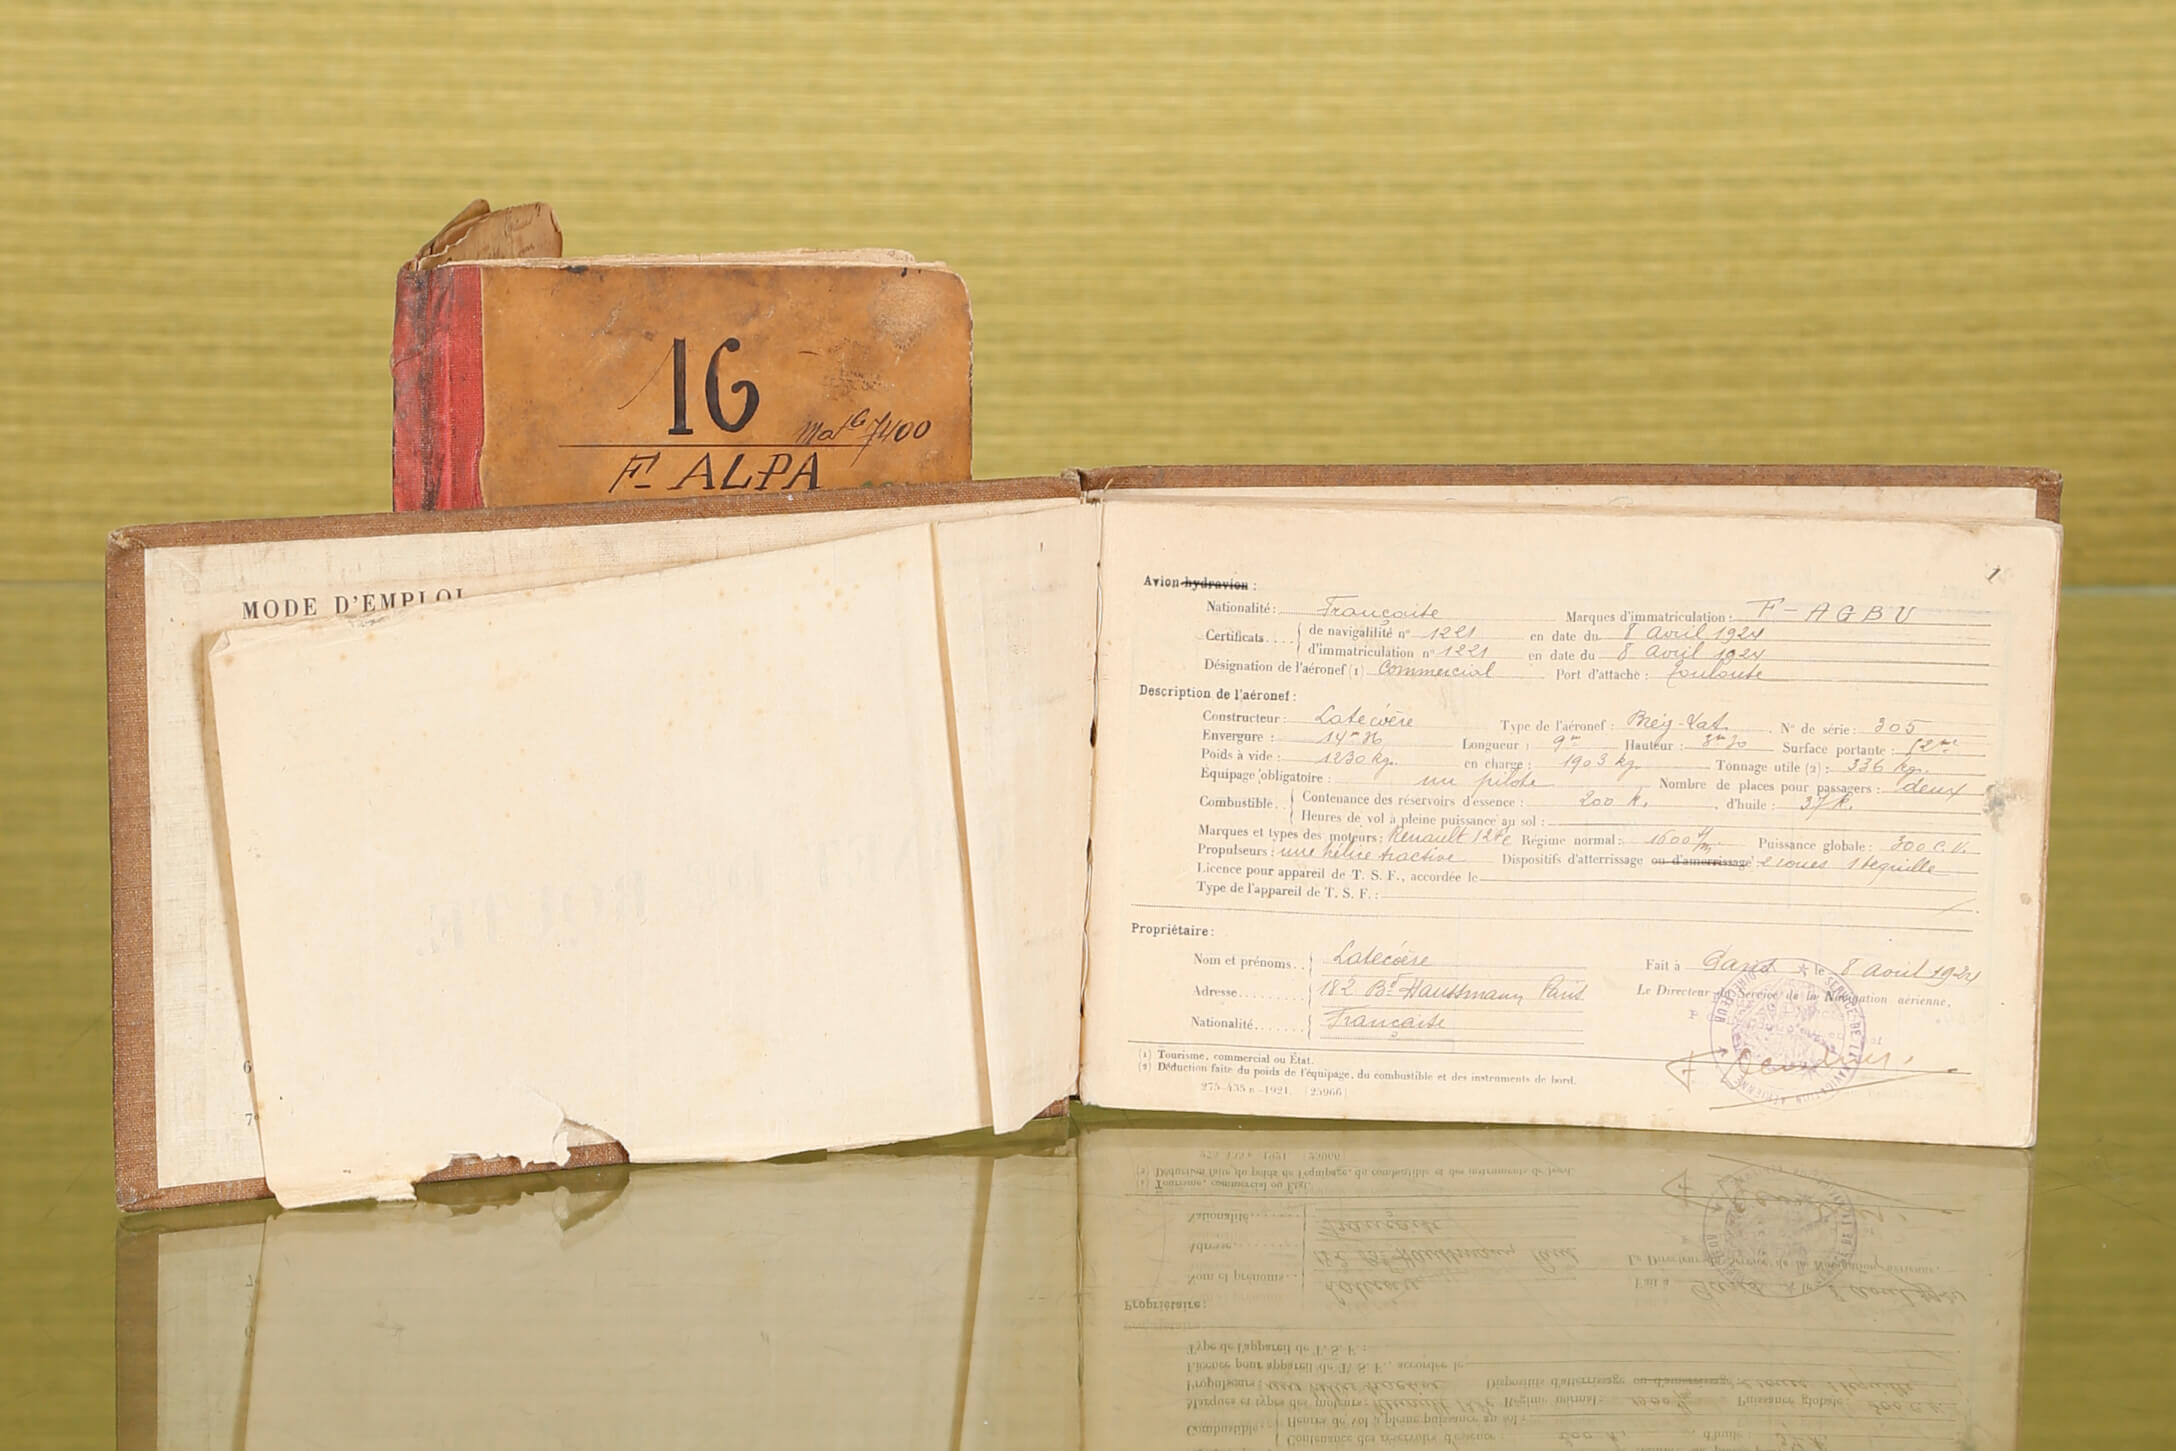 16
Mat 7400
F-ALPA
MODE D'EMPLOI
6
7°
1
Avion hydravion :
Nationalité : Française Marques d'immatriculation : F-AGBU
Certificats.... de navigabilité n° 1221 en date du 8 avril 1924
d'immatriculation n° 1221 en date du 8 avril 1924
Désignation de l'aéronef (1) Commercial Port d'attache : Toulouse
Description de l'aéronef :
Constructeur : Latécoère Type de l'aéronef : Brég-Lat N° de série : 305
Envergure : Longueur : 9m Hauteur : Surface portante :
Poids à vide : 1230 kg. en charge : 1903 kg. Tonnage utile (2) : 336 kgs.
Equipage obligatoire : un pilote Nombre de places pour passagers : deux
Combustible.. Contenance des réservoirs d'essence : 200 k. , d'huile : 37 k.
Heures de vol à pleine puissance au sol :
Marques et types des moteurs : Renault 12 Fe Régime normal : 1600 t/m Puissance globale : 300 C.V.
Propulseurs : une hélice tractive Dispositifs d'atterrissage ou d'amerrissage : 2 roues 1 béquille
Licence pour appareil de T. S. F., accordée le
Type de l'appareil de T. S. F. :
Propriétaire :
Nom et prénoms.. Latécoère Fait à Paris le 8 avril 1924
Adresse......... 182 Bd Haussmann Paris Le Directeur du Service de la Navigation aérienne,
Nationalité....... Française
DIRECTEUR SERVICE DE LA NAVIGATION AERIENNE
(1) Tourisme, commercial ou État.
(2) Déduction faite du poids de l'équipage, du combustible et des instruments de bord.
275-435 B.-1921. [25966]